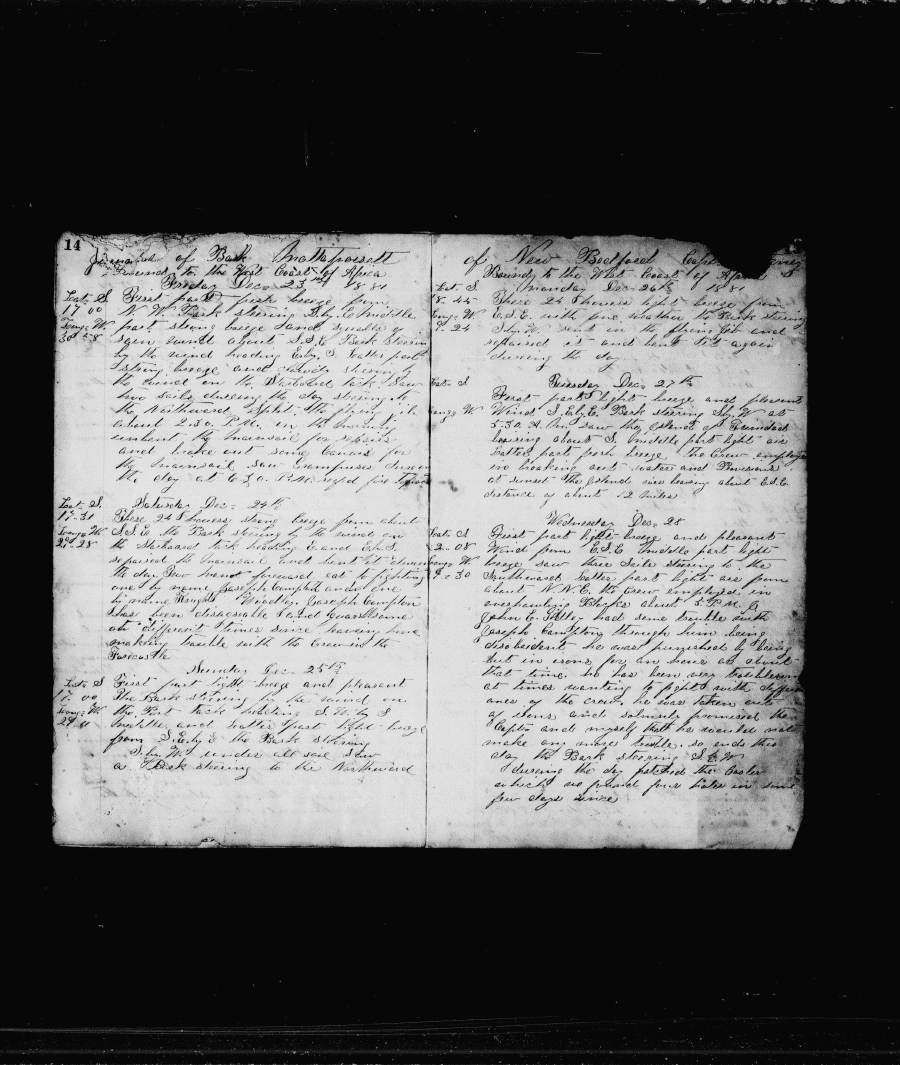 14
Journal of Bark Mattapoisett
Bound to the West Coast of Africa
Friday Dec. 23rd 1881
Lat. S
17 00
Long. W.
First part fresh breeze from
N.W. Bark steering S.by.E. Middle
part strong breeze and squally of
rain wind about S.S.E. Bark steering
by the wind heading E.by.S. Latter part
strong breeze and steering by
the wind on the Starboard tack Saw
two sails during the day steering to
the Northward Split the flying jib
about 2.30. P.M. in the
unbent the mainsail for repairs
and broke out some Canvas for
the mainsail saw Grampuses during
the day at 6.30. P.M.
Saturday Dec. 24th
Lat. S.
17.31
Long. W.
29.28
These 24 hours strong breeze from about
S.S.E. the Bark steering by the wind on
the Starboard tack heading E. and E.by.S.
repaired the mainsail and bent it during
the day Two hands forward got to fighting
one by name Joseph Campton and one
by name Joseph Campton
has been disagreeable and quarrelsome
at different times since leaving home
making trouble with the Crew in the
Forecastle
Sunday Dec. 25th
Lat. S
17. 00
Long. W.
29
First part light breeze and pleasant
The Bark steering by the wind on
the Port tack heading S.W.by.S
Middle and Latter part light breeze
from S.E.by.E the Bark steering
S.by.W. under all sail Saw
a Bark steering to the Northward
of New Bedford
Bound to the West Coast of Africa
Monday Dec. 26th 1881
Lat. S
18. 45
Long. W
24
These 24 hours light breeze from
E.S.E. with fine weather the Bark steering
S.by.W. sent in the flying jib and
repaired it and bent it again
during the day
Tuesday Dec. 27th
Lat. S
Long. W
First part light breeze and pleasant
Wind S.E.by.E. Bark steering S.by.W. at
5.30 A.M. saw the Island of Trinidad
bearing about S. middle part light air
Latter part fresh breeze. the Crew employed
in breaking out water and Provisions
at sunset the Island bearing about E.S.E.
distance of about 12 miles
Wednesday Dec. 28
Lat. S
08
Long. W.
30
First part light breeze and pleasant
Wind from E.S.E. middle part light
breeze saw three Sails steering to the
Southward Latter part light air from
about N.N.E. the Crew employed in
overhauling about 5. P.M.
John C. had some trouble with
Joseph Campton through him being
disobedient. he was punished by being
put in irons for an hour at about
that time. he has been very troublesome
at times wanting to fight with different
ones of the crew, he was taken out
of irons and solemnly promised the
Capt. and myself that he would not
make any more trouble. so ends this
day the Bark steering S.by.W
during the day patched the
which we found four holes in some
few days since